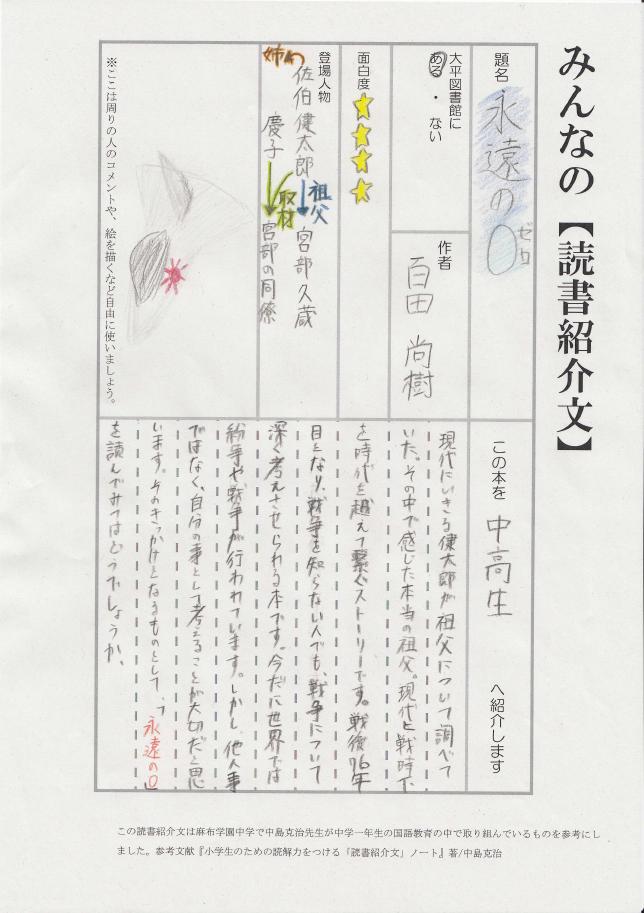 みんなの【読書紹介文】
題名
永遠の0
ゼロ
大平図書館に
ある ・ ない
作者
百田 尚樹
面白度
登場人物
佐伯健太郎
祖父
宮部久蔵
姉
慶子
取材
宮部の同僚
※ここは周りの人のコメントや、絵を描くなど自由に使いましょう。
この本を 中高生 へ紹介します
現代にいきる健太郎が祖父について調べて
いた。その中で感じた本当の祖父。現代と戦時下
を時代を越えて繋ぐストーリーです。戦後76年
目となり、戦争を知らない人でも、戦争について
深く考えさせられる本です。今だに世界では
紛争や戦争が行われています。しかし、他人事
ではなく、自分の事として考えることが大切だと思
います。そのきっかけとなるものとして、「永遠の0」
を読んでみてはどうでしょうか。
この読書紹介文は麻布学園中学で中島克治先生が中学一年生の国語教育の中で取り組んでいるものを参考にし
ました。参考文献『小学生のための読解力をつける「読書紹介文」ノート』著/中島克治